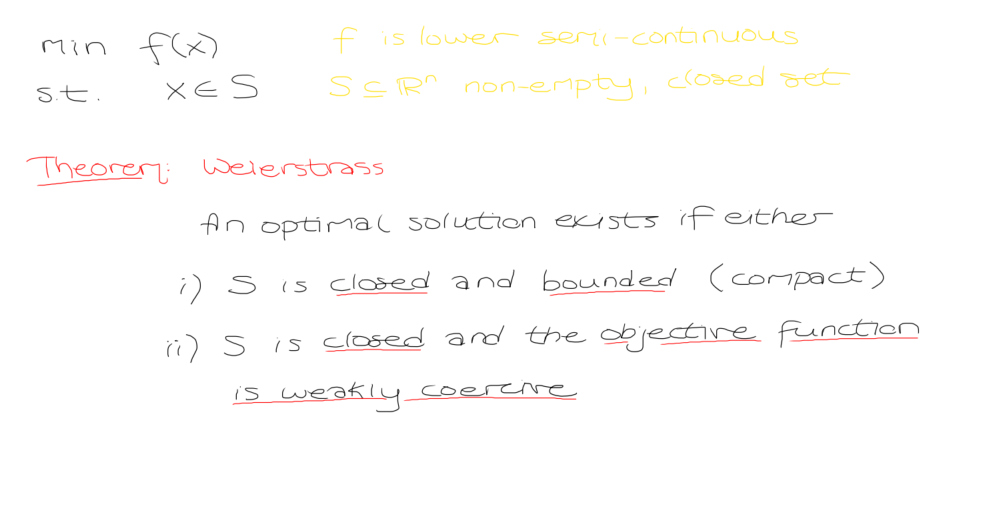 min f(x) f is lower semi-continuous
s.t. x ∈ S S ⊆ ℝⁿ non-empty, closed set
Theorem: Weierstrass
An optimal solution exists if either
i) S is closed and bounded (compact)
ii) S is closed and the objective function
is weakly coercive